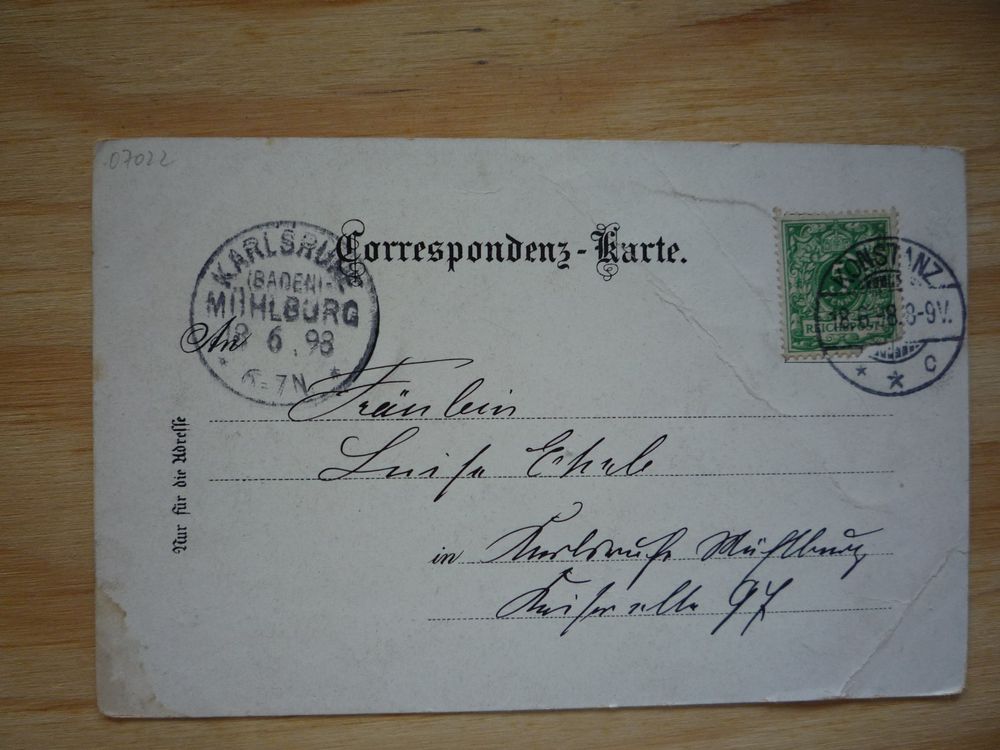 07022
Correspondenz-Karte.
KARLSRUHE
(BADEN)-
MÜHLBURG
18 6 .98
6-7N
KONSTANZ
18.6.98.8-9V.
* * C
REICHSPOST
An
Fräulein
Luise
in Karlsruhe Mühlburg
Kaiserallee 97
Nur für die Adresse